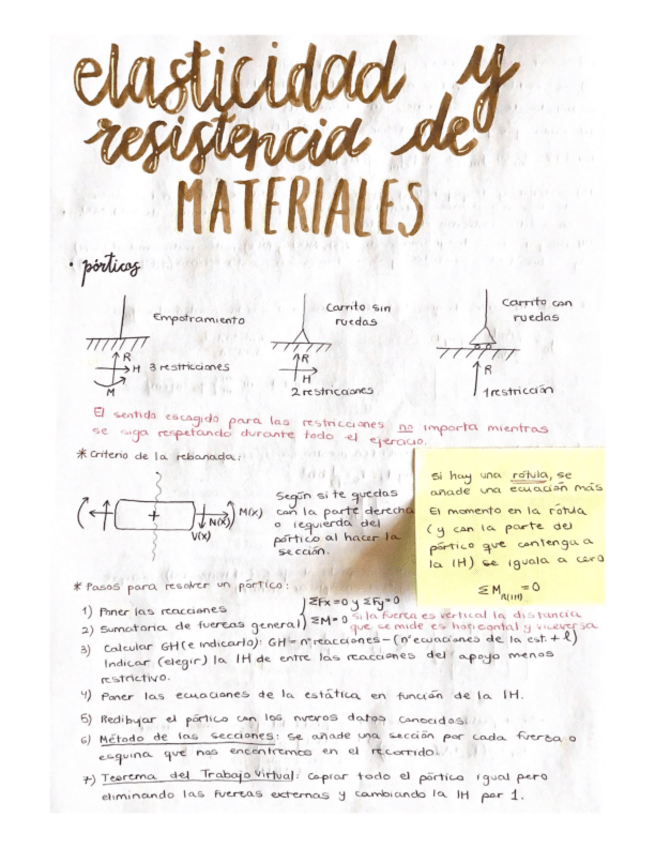 elasticidad y
resistencia de
MATERIALES
• pórticos
Empotramiento
Carrito sin
ruedas
Carrito con
ruedas
R
H
M
3 restricciones
R
H
2 restricciones
R
1 restricción
El sentido escogido para las restricciones no importa mientras
se siga respetando durante todo el ejercicio.
* Criterio de la rebanada:
+
N(x)
M(x)
V(x)
Según si te quedas
con la parte derecha
o izquierda del
pórtico al hacer la
sección.
Si hay una rótula, se
añade una ecuación más
El momento en la rótula
(y con la parte del
pórtico que contenga a
la IH) se iguala a cero
ΣM R(IH) = 0
* Pasos para resolver un pórtico:
1) Poner las reacciones
2) Sumatoria de fuerzas general
ΣFx=0 y ΣFy=0
ΣM=0 si la fuerza es vertical la distancia
que se mide es horizontal y viceversa
3) Calcular GH (e indicarlo): GH = nº reacciones - (nº ecuaciones de la est. + l)
Indicar (elegir) la IH de entre las reacciones del apoyo menos
restrictivo.
4) Poner las ecuaciones de la estática en función de la IH.
5) Redibujar el pórtico con los nuevos datos conocidos.
6) Método de las secciones: se añade una sección por cada fuerza o
esquina que nos encontremos en el recorrido.
7) Teorema del Trabajo Virtual: copiar todo el pórtico igual pero
eliminando las fuerzas externas y cambiando la IH por 1.